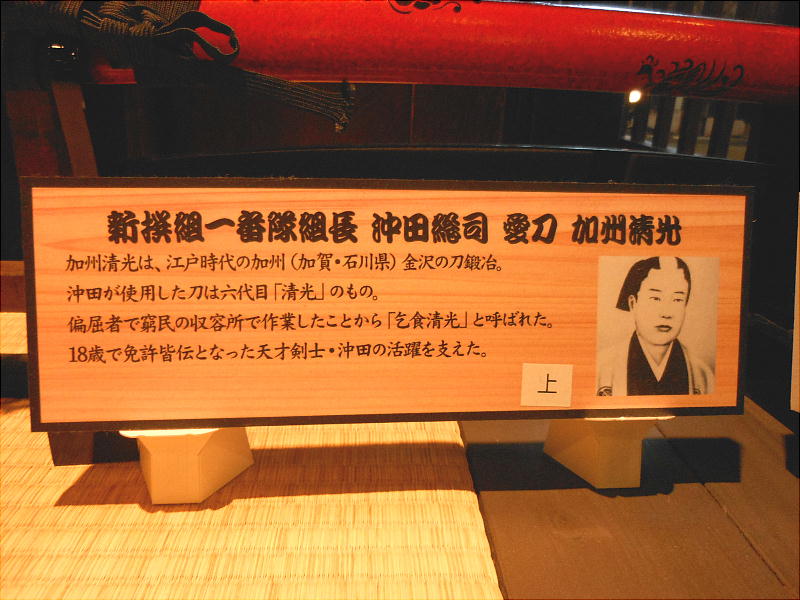 新撰組一番隊組長 沖田総司 愛刀 加州清光
加州清光は、江戸時代の加州（加賀・石川県）金沢の刀鍛冶。
沖田が使用した刀は六代目「清光」のもの。
偏屈者で窮民の収容所で作業したことから「乞食清光」と呼ばれた。
18歳で免許皆伝となった天才剣士・沖田の活躍を支えた。
上